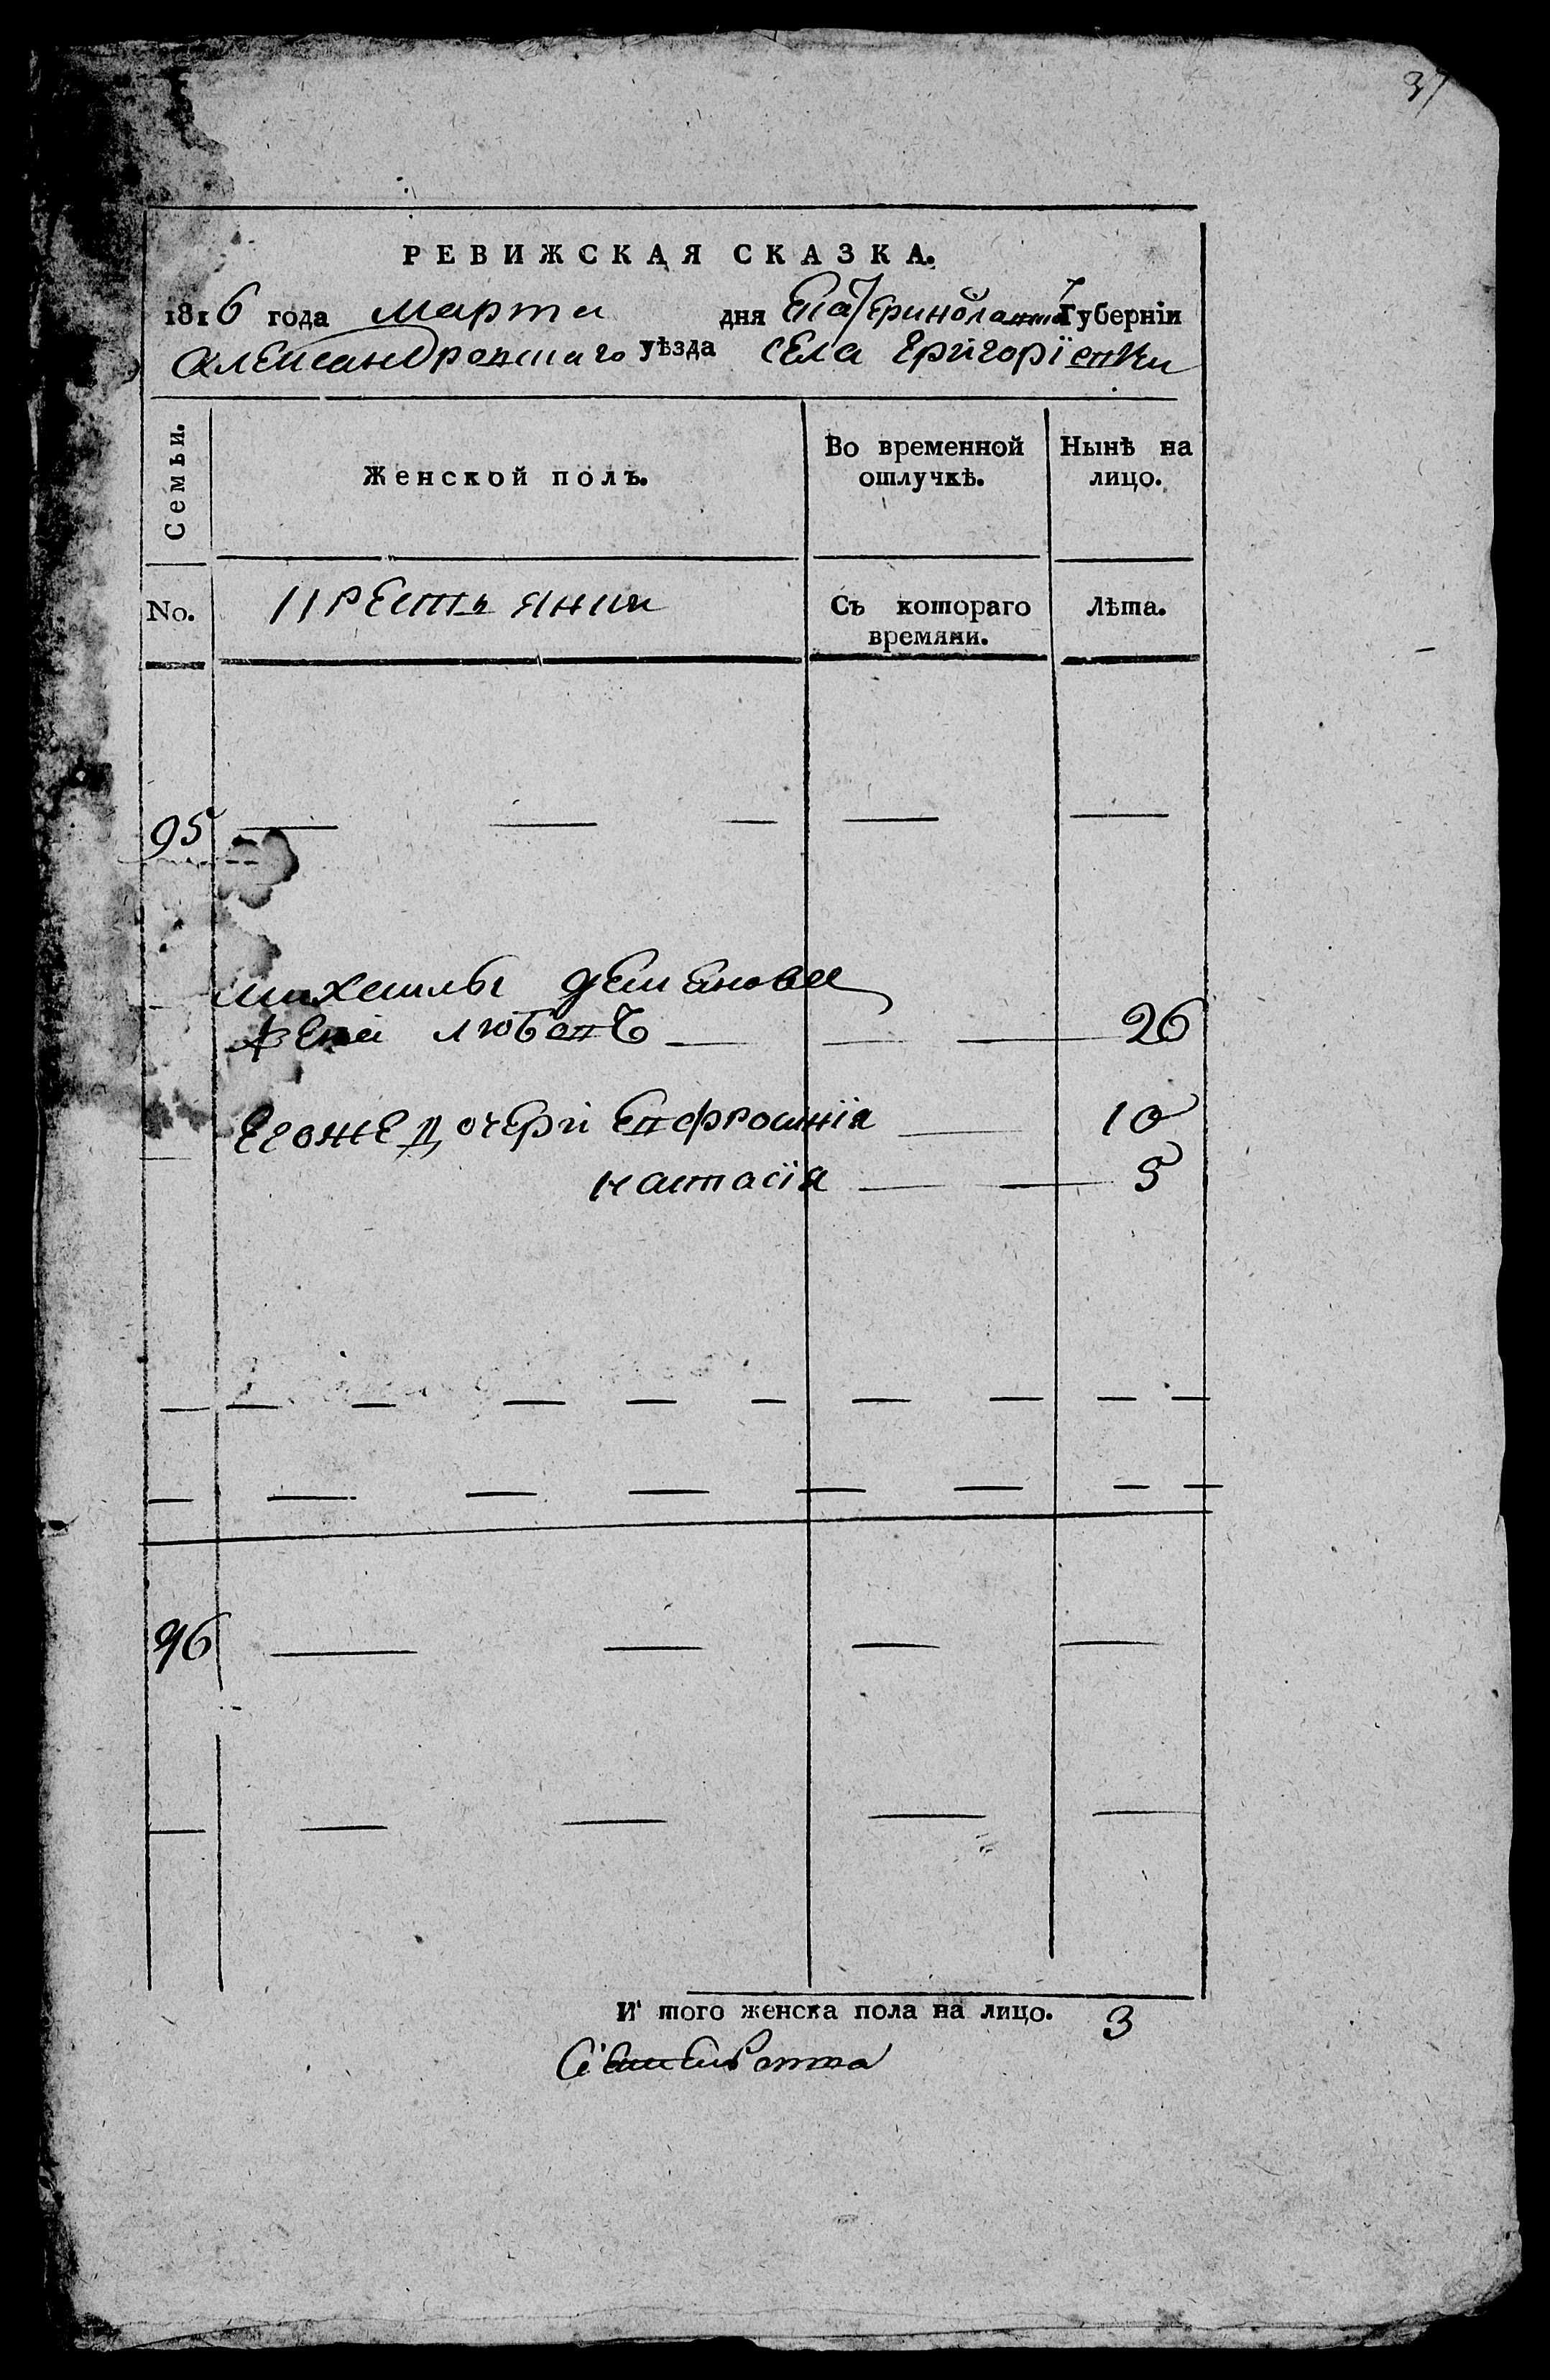 37
РЕВИЖСКАЯ СКАЗКА.
1816 года марта дня Екатеринославской Губерніи
Александровскаго уѣзда села Григорїевки
Семьи.
Женской полъ.
Во временной отлучкѣ.
Нынѣ на лицо.
No.
крестьянки
Съ котораго времяни.
Лѣта.
95
михаилы демянова
жена любовь 26
егоже дочери Евфросинїя 10
настасїя 5
96
И того женска пола на лицо. 3